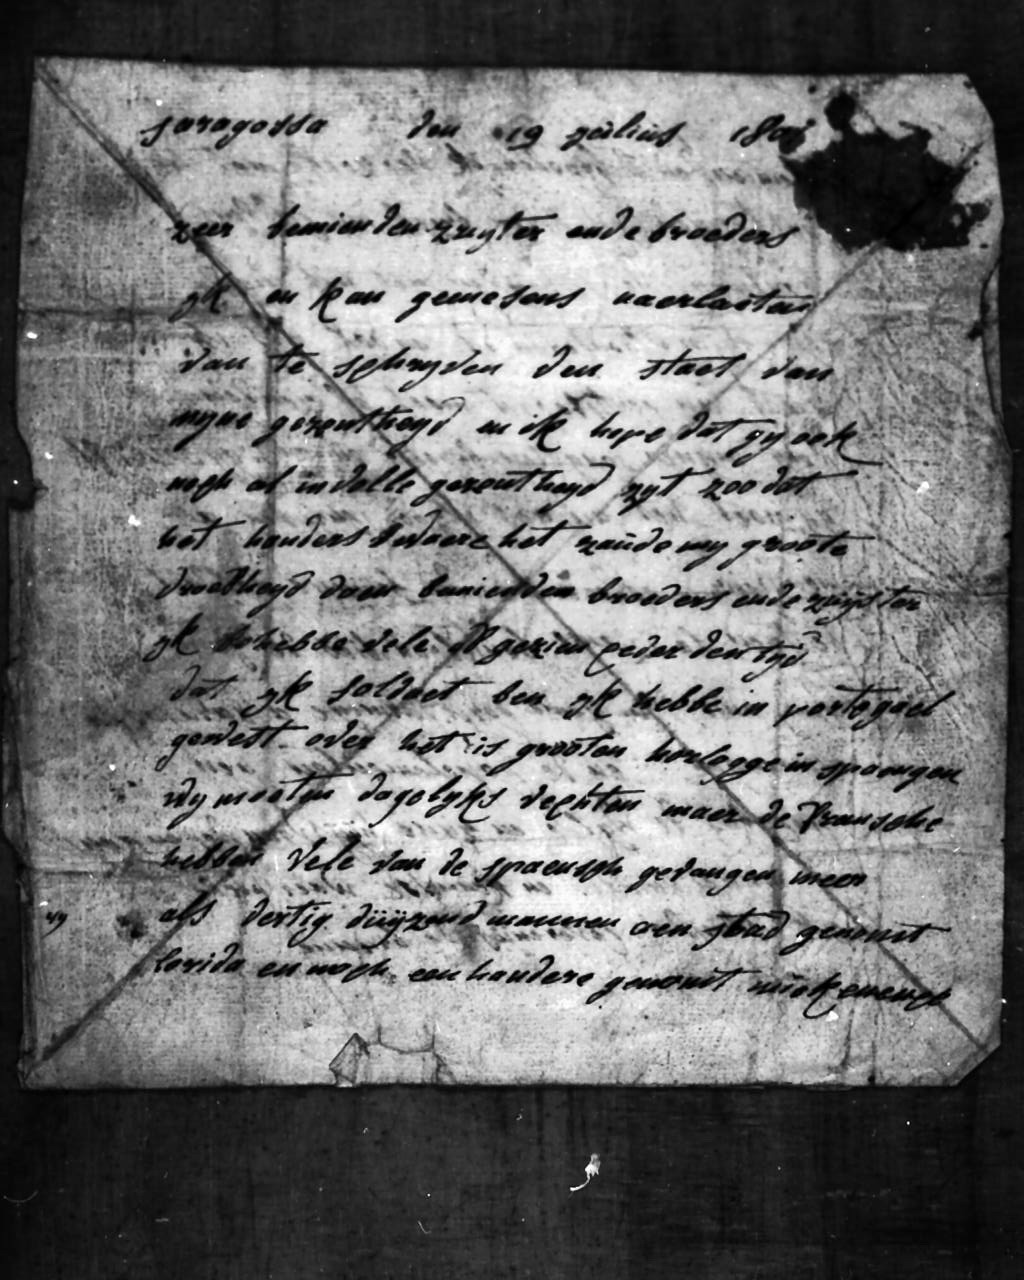 saragossa den 19 julius
zeer beminden zuyter ende broeders
yk en kan geensens naerlaeten
van te schryven den staet van
myne gezontheyd en ik hope dat gy ook
nogh al in volle gezontheyd zyt zoo dat
het handers dwaere het zaude my groote
droefheyd doen beminden broeders ende zuyster
yk hebbe vele gezien zeder den tyd
dat yk soldaet ben yk hebbe in portegael
gewest over het is grooten horlogge in spaengen
wy moeten dagelyks vechten maer de Fransche
hebben vele van de spaensch gevangen meer
als dertig duyzend mannen een stad genomt
lerida en nogh een handere genomt
49